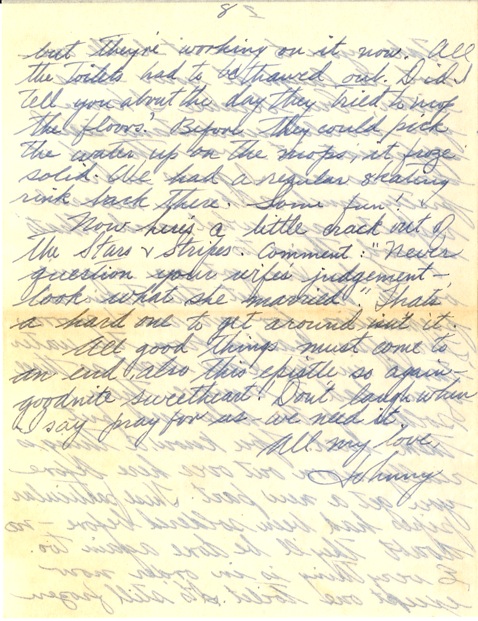 8
but they're working on it now. All
the toilets had to be thawed out. Did I
tell you about the day they tried to mop
the floors? Before they could pick
the water up on the mops, it froze
solid. We had a regular skating
rink back there. Some fun!
Now here's a little crack out of
the Stars & Stripes. Comment: "Never
question your wife's judgement -
look what she married!" That's
a hard one to get around isn't it.
All good things must come to
an end, also this epistle so again -
goodnite sweetheart! Don't laugh when
I say pray for us - we need it.
All my love,
Johnny